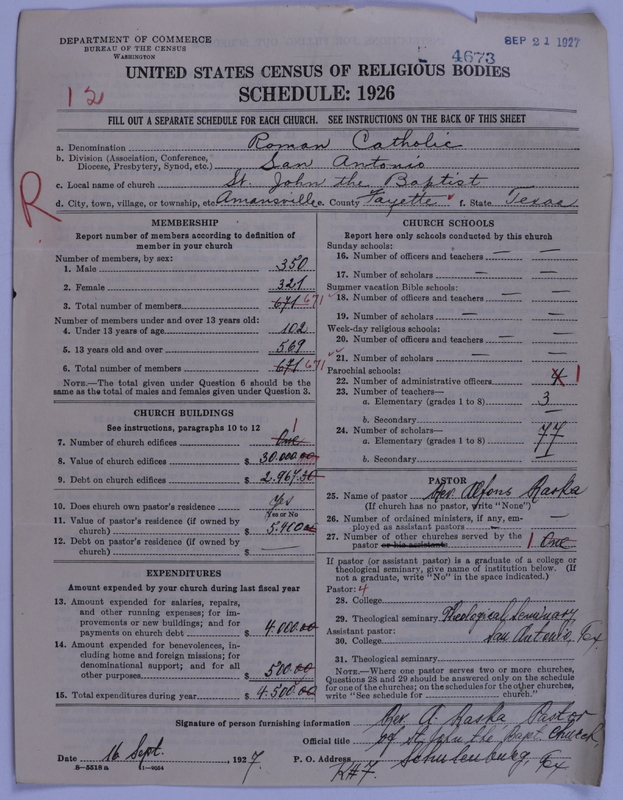 DEPARTMENT OF COMMERCE
BUREAU OF THE CENSUS
WASHINGTON
4673
SEP 21 1927
UNITED STATES CENSUS OF RELIGIOUS BODIES
SCHEDULE: 1926
12
FILL OUT A SEPARATE SCHEDULE FOR EACH CHURCH. SEE INSTRUCTIONS ON THE BACK OF THIS SHEET
a. Denomination Roman Catholic
b. Division (Association, Conference, Diocese, Presbytery, Synod, etc.) San Antonio
c. Local name of church St. John the Baptist
d. City, town, village, or township, etc. Amansville e. County Fayette f. State Texas
R
MEMBERSHIP
Report number of members according to definition of
member in your church
Number of members, by sex:
1. Male 350
2. Female 321
3. Total number of members 671 671
Number of members under and over 13 years old:
4. Under 13 years of age 102
5. 13 years old and over 569
6. Total number of members 671 671
NOTE.—The total given under Question 6 should be the
same as the total of males and females given under Question 3.
CHURCH BUILDINGS
See instructions, paragraphs 10 to 12
7. Number of church edifices One 1
8. Value of church edifices $ 30.000.00
9. Debt on church edifices $ 2.967.30
10. Does church own pastor's residence? Yes
Yes or No
11. Value of pastor's residence (if owned by
church) $ 5.910.00
12. Debt on pastor's residence (if owned by
church) $ —
EXPENDITURES
Amount expended by your church during last fiscal year
13. Amount expended for salaries, repairs,
and other running expenses; for im-
provements or new buildings; and for
payments on church debt $ 4.000.00
14. Amount expended for benevolences, in-
cluding home and foreign missions; for
denominational support; and for all
other purposes $ 500.00
15. Total expenditures during year $ 4.500.00
CHURCH SCHOOLS
Report here only schools conducted by this church
Sunday schools:
16. Number of officers and teachers — —
17. Number of scholars — —
Summer vacation Bible schools:
18. Number of officers and teachers — —
19. Number of scholars — —
Week-day religious schools:
20. Number of officers and teachers — —
21. Number of scholars — —
Parochial schools:
22. Number of administrative officers 1
23. Number of teachers—
a. Elementary (grades 1 to 8) 3
b. Secondary
24. Number of scholars—
a. Elementary (grades 1 to 8) 77
b. Secondary —
PASTOR
25. Name of pastor Rev. Alfons Raska
(If church has no pastor, write "None")
26. Number of ordained ministers, if any, em-
ployed as assistant pastors —
27. Number of other churches served by the
pastor or his assistants 1 One
If pastor (or assistant pastor) is a graduate of a college or
theological seminary, give name of institution below. (If
not a graduate, write "No" in the space indicated.)
Pastor: 4
28. College
29. Theological seminary Theological Seminary
Assistant pastor: San Antonio, Tex
30. College
31. Theological seminary
NOTE.—Where one pastor serves two or more churches,
Questions 28 and 29 should be answered only on the schedule
for one of the churches; on the schedules for the other churches,
write "See schedule for church.")
Signature of person furnishing information Rev. A Raska Pastor
Official title of St. John the Bapt. Church,
Date 16 Sept. , 1927 P. O. Address Schulenburg, Tex
8—5518 a